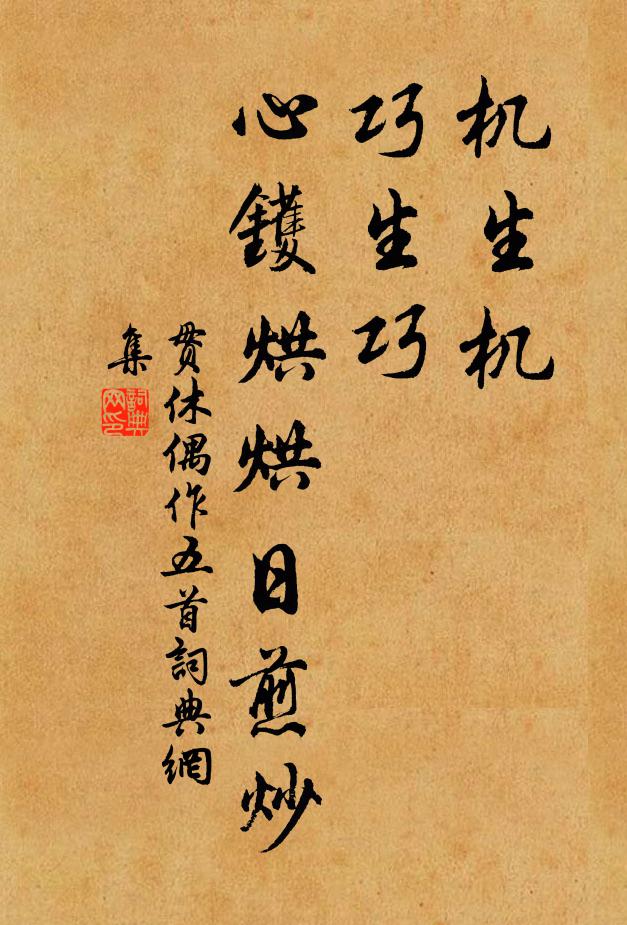 机生机
巧生巧
心鑊烘烘日煎炒
贯休偶作五首詞典網
集
詞典
网印